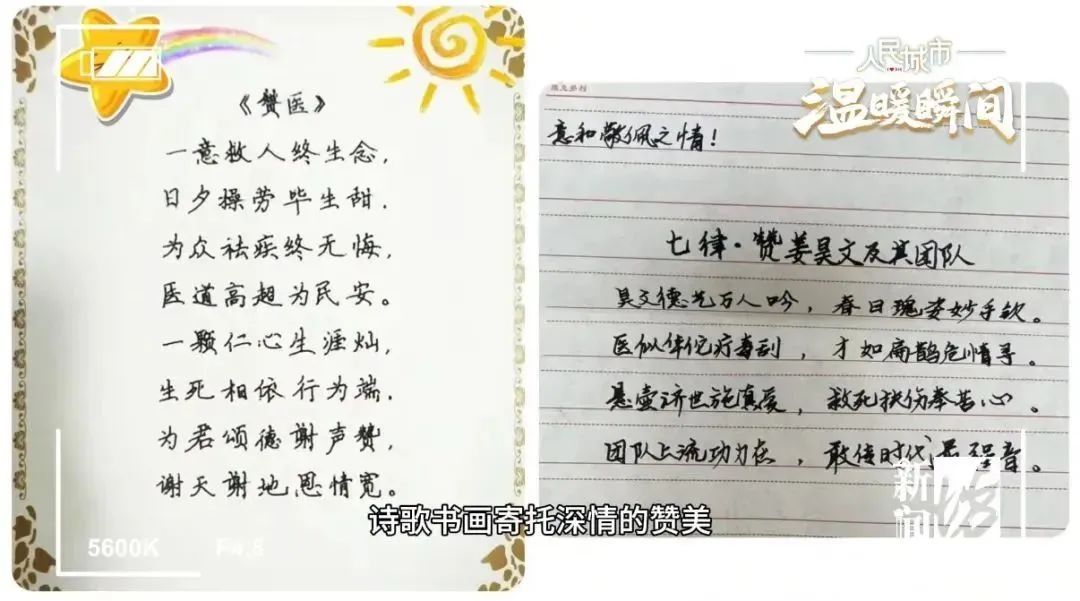 《赞医》
一意救人终生念,
日夕操劳毕生甜.
为众祛疾终无悔,
医道高超为民安。
一颗仁心生涯灿,
生死相依行为端.
为君颂德谢声赞,
谢天谢地恩情宽。
5600K F4.5
人民城市
温暖瞬间
意和敬佩之情!
七律·赞姜昊文及其团队
昊文德艺万人吟，春日瑰姿妙手钦。
医似华佗疗毒刮，才如扁鹊危情寻。
悬壶济世施真爱，救死扶伤奉苦心。
团队上流功力在，敢传时代最强音。
新闻坊
诗歌书画寄托深情的赞美